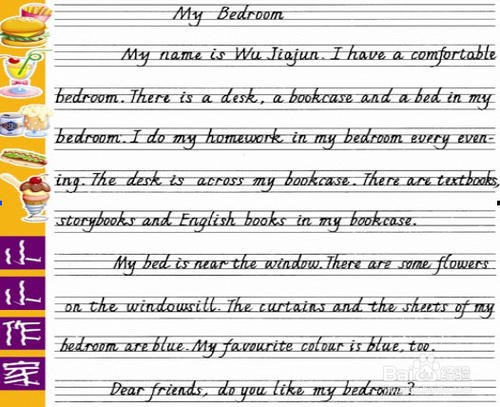 My Bedroom
My name is Wu Jiajun. I have a comfortable
bedroom. There is a desk, a bookcase and a bed in my
bedroom. I do my homework in my bedroom every even-
ing. The desk is across my bookcase. There are textbooks,
storybooks and English books in my bookcase.
My bed is near the window. There are some flowers
on the windowsill. The curtains and the sheets of my
bedroom are blue. My favourite colour is blue, too.
Dear friends, do you like my bedroom?
作
家